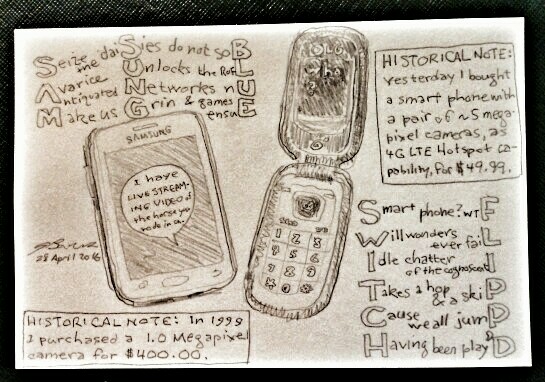 Seize the daisies do not so B
Avarice Unlocks the Roe L
Antiquated Networks n U
Make us Grin & games ensue E
SAMSUNG
I have
LIVE STREAM-
ING VIDEO of
the horse you
rode in on.
28 April 2016
HISTORICAL NOTE: In 1999
I purchased a 1.0 Megapixel
camera for $400.00.
HISTORICAL NOTE:
Yesterday I bought
a smart phone with
a pair of 5 mega-
pixel cameras, as
4G LTE Hotspot ca-
pability, for $49.99.
Smart phone? WTF
Will wonders ever fail
Idle chatter of the cognoscenti
Takes a hop & a skip
Cause we all jump
Having been played